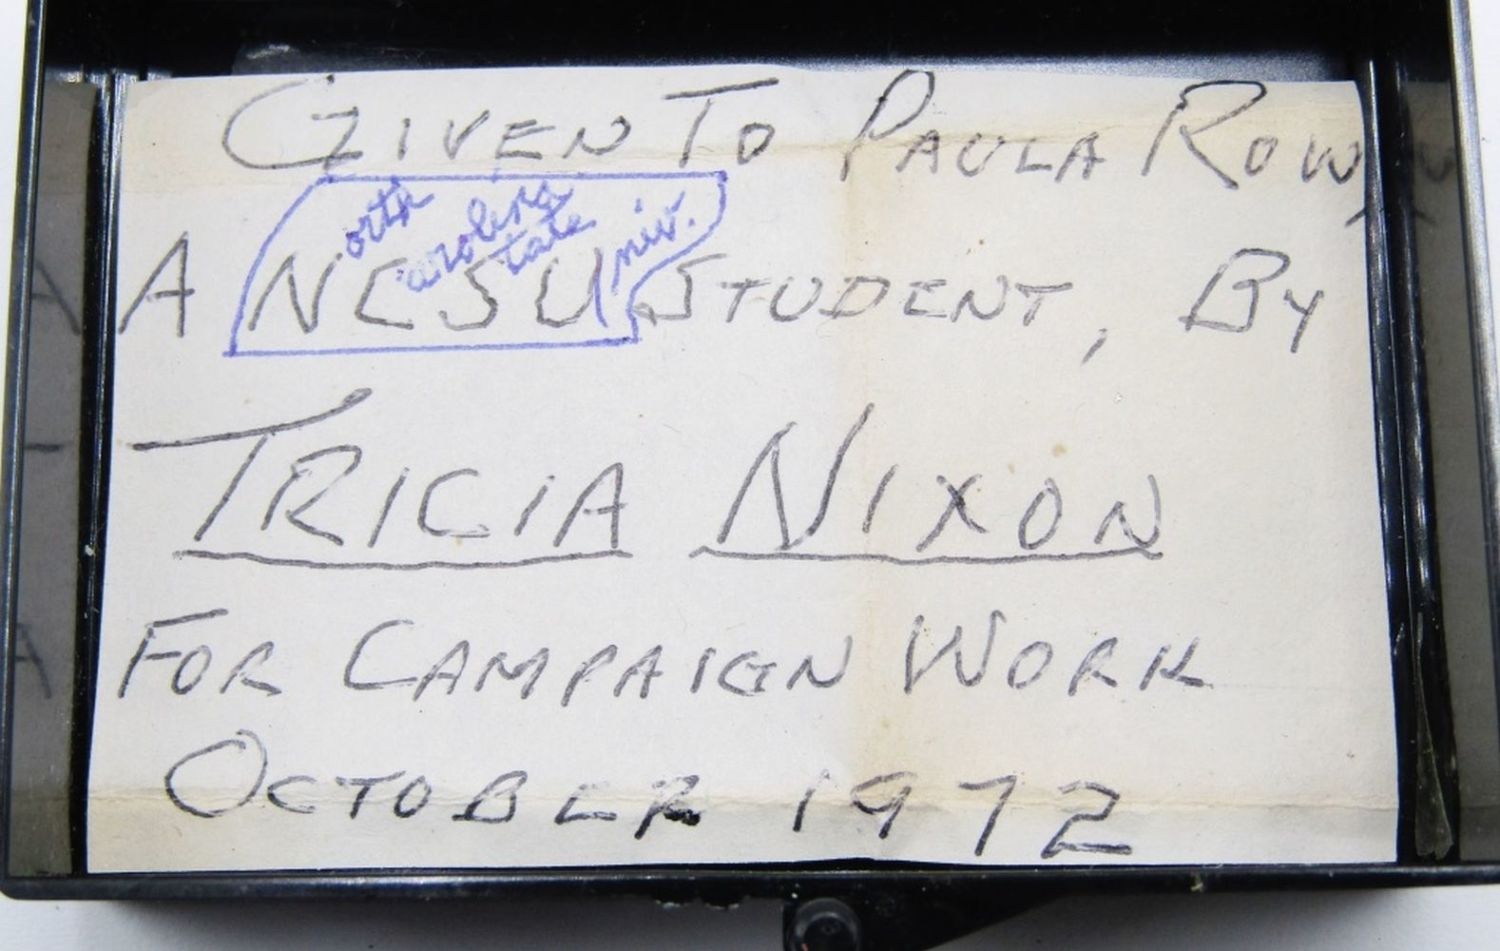 GIVEN TO PAULA ROW
orth arolina tate niv.
A NCSU STUDENT, BY
TRICIA NIXON
FOR CAMPAIGN WORK
OCTOBER 1972